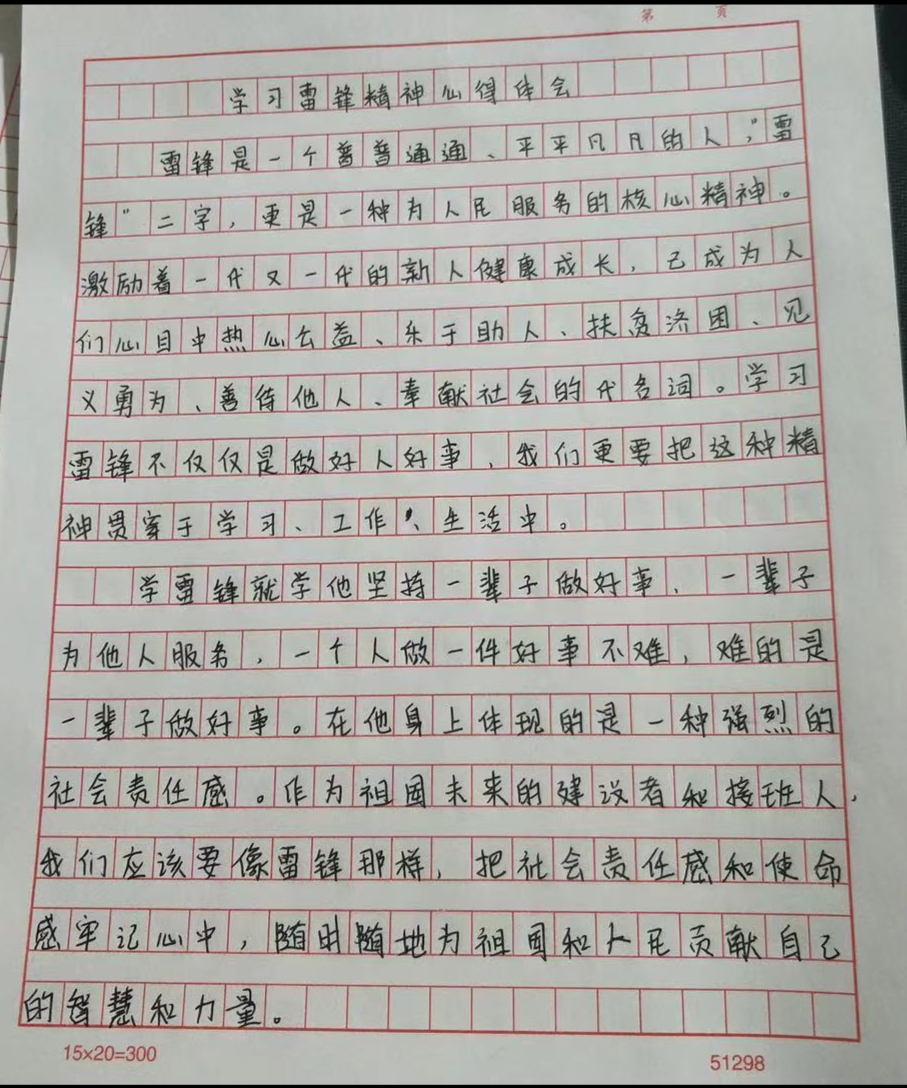 第 页
学习雷锋精神心得体会
雷锋是一个普普通通、平平凡凡的人,"雷
锋"二字,更是一种为人民服务的核心精神。
激励着一代又一代的新人健康成长,已成为人
们心目中热心公益、乐于助人、扶贫济困、见
义勇为、善待他人、奉献社会的代名词。学习
雷锋不仅仅是做好人好事,我们更要把这种精
神贯穿于学习、工作、生活中。
学雷锋就学他坚持一辈子做好事、一辈子
为他人服务,一个人做一件好事不难,难的是
一辈子做好事。在他身上体现的是一种强烈的
社会责任感。作为祖国未来的建设者和接班人,
我们应该要像雷锋那样,把社会责任感和使命
感牢记心中,随时随地为祖国和人民贡献自己
的智慧和力量。
15×20=300
51298